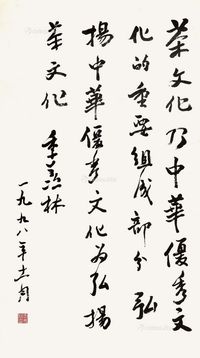 茶文化乃中华优秀文
化的重要组成部分 弘
揚中華優秀文化为弘揚
茶文化 季羡林
一九九八年十一月